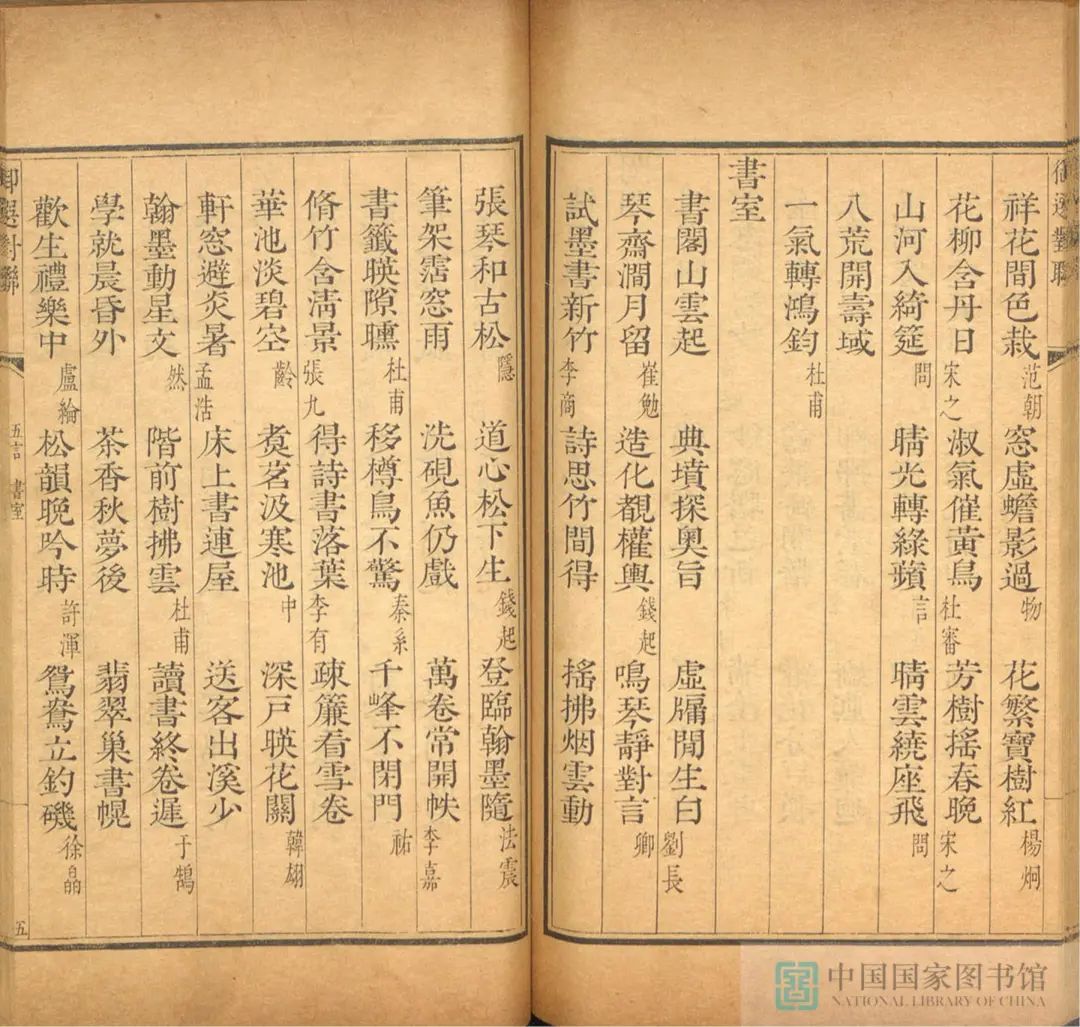 御選對聯
祥花間色栽 范朝 窓虛蟾影過 物 花繁寶樹紅 楊炯
花柳含丹日 宋之 淑氣催黃鳥 杜審 芳樹搖春晚 宋之
山河入綺筵 問 晴光轉綠蘋 言 晴雲繞座飛 問
八荒開壽域
一氣轉鴻鈞 杜甫
書室
書閣山雲起 典墳探奧旨 虛牖閒生白 劉長
琴齋澗月留 崔勉 造化覩權輿 錢起 鳴琴靜對言 卿
試墨書新竹 李商 詩思竹間得 搖拂烟雲動
張琴和古松 隱 道心松下生 錢起 登臨翰墨隨 法震
筆架霑窓雨 洗硯魚仍戲 萬卷常開帙 李嘉
書籤暎隙曛 杜甫 移樽鳥不驚 秦系 千峰不閉門 祐
脩竹含清景 張九 得詩書落葉 李有 疎簾看雪卷
華池淡碧空 齡 煑茗汲寒池 中 深戸暎花關 韓翃
軒窓避炎暑 孟浩 床上書連屋 送客出溪少
翰墨動星文 然 階前樹拂雲 杜甫 讀書終卷遲 于鵠
學就晨昏外 茶香秋夢後 翡翠巢書幌
歡生禮樂中 盧綸 松韻晚吟時 許渾 鴛鴦立釣磯 徐晶
御選對聯 五言 書室 五
中国国家图书馆
NATIONAL LIBRARY OF CHINA